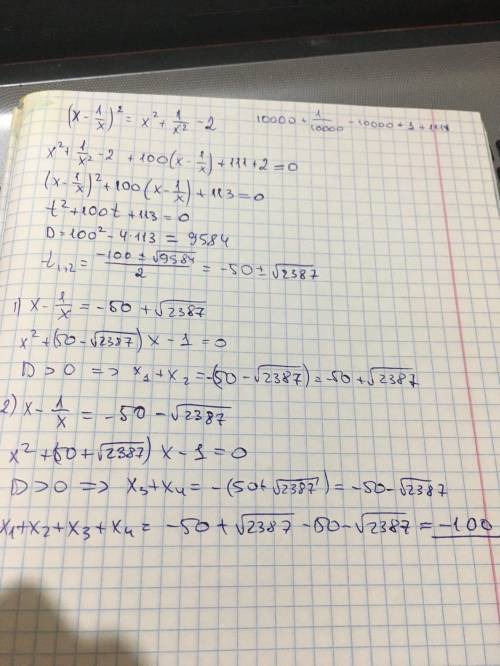 (x - 1/x)² = x² + 1/x² - 2
10000 + 1/10000 - 10000 + 1 + 111
x² + 1/x² - 2 + 100(x - 1/x) + 111 + 2 = 0
(x - 1/x)² + 100(x - 1/x) + 113 = 0
t² + 100t + 113 = 0
D = 100² - 4·113 = 9584
t₁,₂ = (-100 ± √9584)/2 = -50 ± √2387
1) x - 1/x = -50 + √2387
x² + (50 - √2387) x - 1 = 0
D > 0 => x₁ + x₂ = -(50 - √2387) = -50 + √2387
2) x - 1/x = -50 - √2387
x² + (50 + √2387) x - 1 = 0
D > 0 => x₃ + x₄ = -(50 + √2387) = -50 - √2387
x₁ + x₂ + x₃ + x₄ = -50 + √2387 - 50 - √2387 = -100